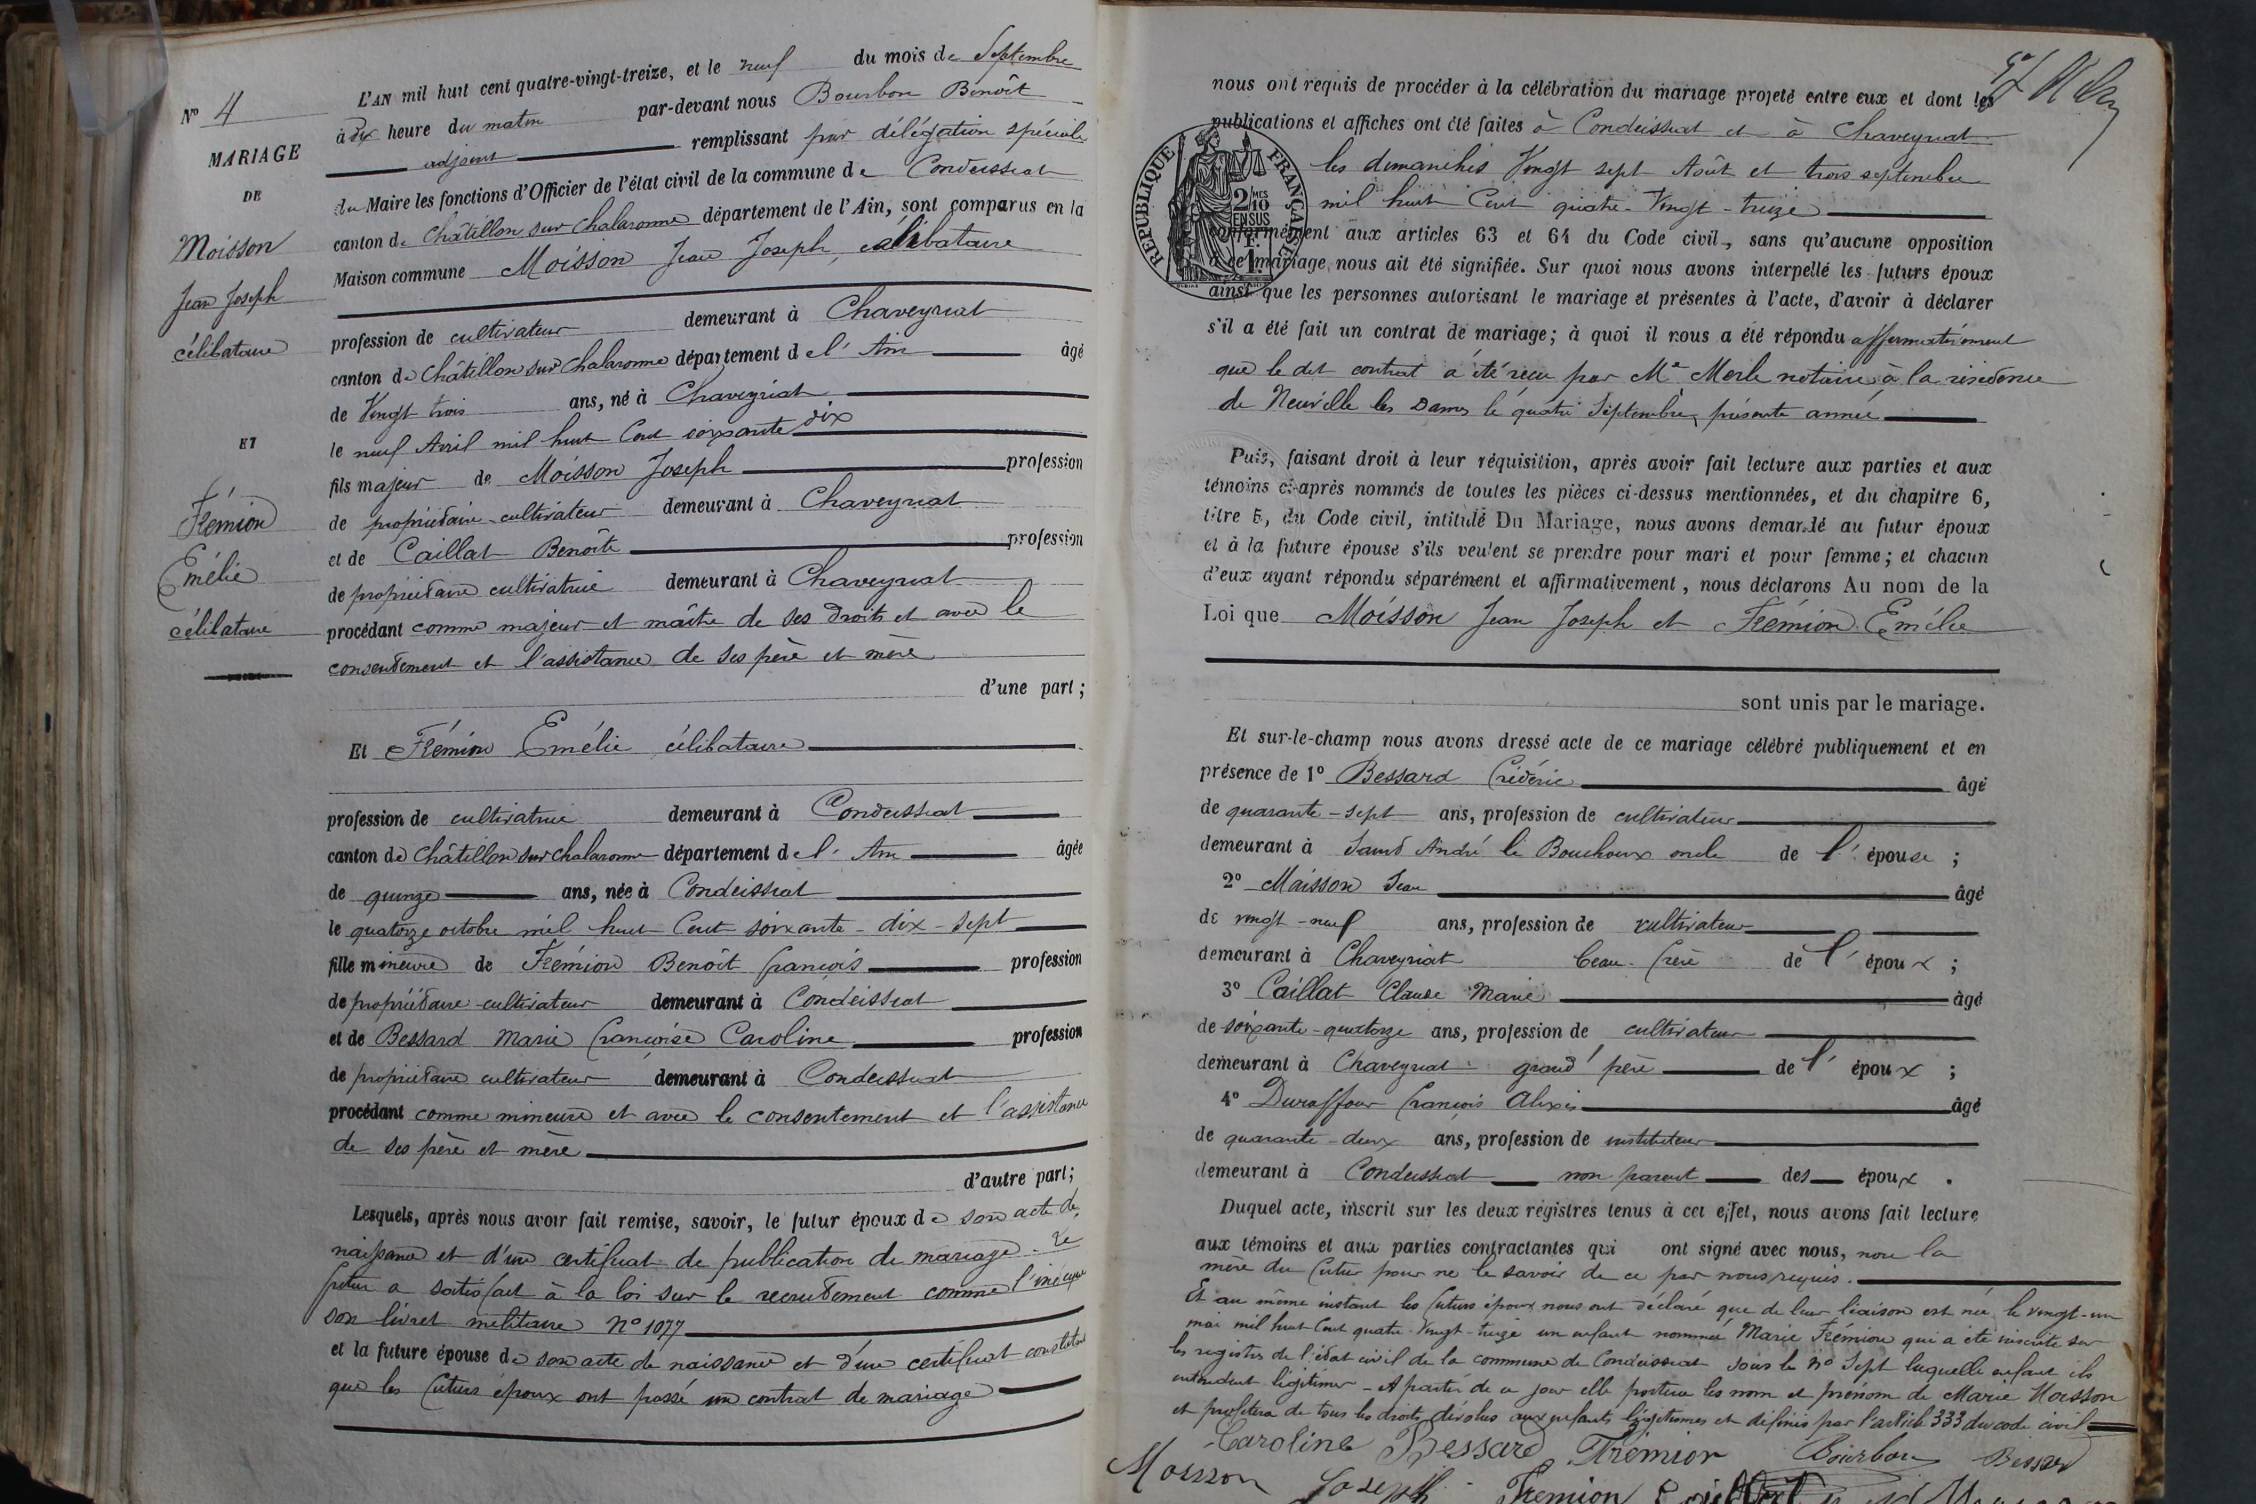 N° 4
MARIAGE
DE
Moisson
Jean Joseph
célibataire
ET
Frémion
Emélie
célibataire
L'AN mil huit cent quatre-vingt-treize, et le neuf du mois de Septembre
à dix heure du matin par-devant nous Bourbon Benoît
adjoint remplissant par délégation spéciale
du Maire les fonctions d'Officier de l'état civil de la commune de Condeissiat
canton de Châtillon sur Chalaronne département de l'Ain, sont comparus en la
Maison commune Moisson Jean Joseph, célibataire
profession de cultivateur demeurant à Chaveyriat
canton de Châtillon sur Chalaronne département de l'Ain âgé
de Vingt trois ans, né à Chaveyriat
le neuf Avril mil huit Cent soixante dix
fils majeur de Moisson Joseph profession
de propriétaire-cultivateur demeurant à Chaveyriat
et de Caillat Benoîte profession
de propriétaire cultivatrice demeurant à Chaveyriat
procédant comme majeur et maître de ses droits et avec le
consentement et l'assistance de ses père et mère
d'une part;
Et Frémion Emélie célibataire
profession de cultivatrice demeurant à Condeissiat
canton de Châtillon sur Chalaronne département de l'Ain âgée
de quinze ans, née à Condeissiat
le quatorze octobre mil huit Cent soixante-dix-sept
fille mineure de Frémion Benoît françois profession
de propriétaire-cultivateur demeurant à Condeissiat
et de Bessard Marie françoise Caroline profession
de propriétaire cultivateur demeurant à Condeissiat
procédant comme mineure et avec le consentement et l'assistance
de ses père et mère
d'autre part;
Lesquels, après nous avoir fait remise, savoir, le futur époux de son acte de
naissance et d'un certificat de publication de mariage. Le
futur a satisfait à la loi sur le recrutement comme l'indique
son livret militaire N° 1077
et la future épouse de son acte de naissance et d'un certificat constatant
que les futurs époux ont passé un contrat de mariage
nous ont requis de procéder à la célébration du mariage projeté entre eux et dont les
publications et affiches ont été faites à Condeissiat et à Chaveyriat
les dimanches Vingt sept Août et trois septembre
mil huit Cent quatre-Vingt-treize
RÉPUBLIQUE FRANÇAISE
2/10 MES
EN SUS
1F.
conformément aux articles 63 et 64 du Code civil, sans qu'aucune opposition
à ce mariage nous ait été signifiée. Sur quoi nous avons interpellé les futurs époux
ainsi que les personnes autorisant le mariage et présentes à l'acte, d'avoir à déclarer
s'il a été fait un contrat de mariage; à quoi il nous a été répondu affirmativement
que le dit contrat a été reçu par Me Merle notaire à la résidence
de Neuville les Dames le quatre Septembre, présente année
Puis, faisant droit à leur réquisition, après avoir fait lecture aux parties et aux
témoins ci-après nommés de toutes les pièces ci-dessus mentionnées, et du chapitre 6,
titre 5, du Code civil, intitulé Du Mariage, nous avons demandé au futur époux
et à la future épouse s'ils veulent se prendre pour mari et pour femme; et chacun
d'eux ayant répondu séparément et affirmativement, nous déclarons Au nom de la
Loi que Moisson Jean Joseph et Frémion Emélie
sont unis par le mariage.
Et sur-le-champ nous avons dressé acte de ce mariage célébré publiquement et en
présence de 1° Bessard frédéric âgé
de quarante-sept ans, profession de cultivateur
demeurant à Saint André le Bouchoux oncle de l'épouse;
2° Maisson Jean âgé
de vingt-neuf ans, profession de cultivateur
demeurant à Chaveyriat beau-frère de l'époux;
3° Caillat Claude Marie âgé
de soixante-quatorze ans, profession de cultivateur
demeurant à Chaveyriat grand'père de l'époux;
4° Duraffour françois Alexis âgé
de quarante-deux ans, profession de instituteur
demeurant à Condeissiat non parent des époux.
Duquel acte, inscrit sur les deux registres tenus à cet effet, nous avons fait lecture
aux témoins et aux parties contractantes qui ont signé avec nous, non la
mère du futur pour ne le savoir de ce par nous requis.
Et au même instant les futurs époux nous ont déclaré que de leur liaison est née, le vingt-un
mai mil huit Cent quatre-Vingt-treize un enfant nommée Marie Frémion qui a été inscrite sur
les registres de l'état civil de la commune de Condeissiat sous le N° Sept laquelle enfant ils
entendent légitimer - A partir de ce jour elle portera les nom et prénom de Marie Moisson
et profitera de tous les droits dévolus aux enfants légitimes et définis par l'article 333 du code civil
Caroline Bessard Frémion Bourbon Bessard
Moisson Joseph Fremion